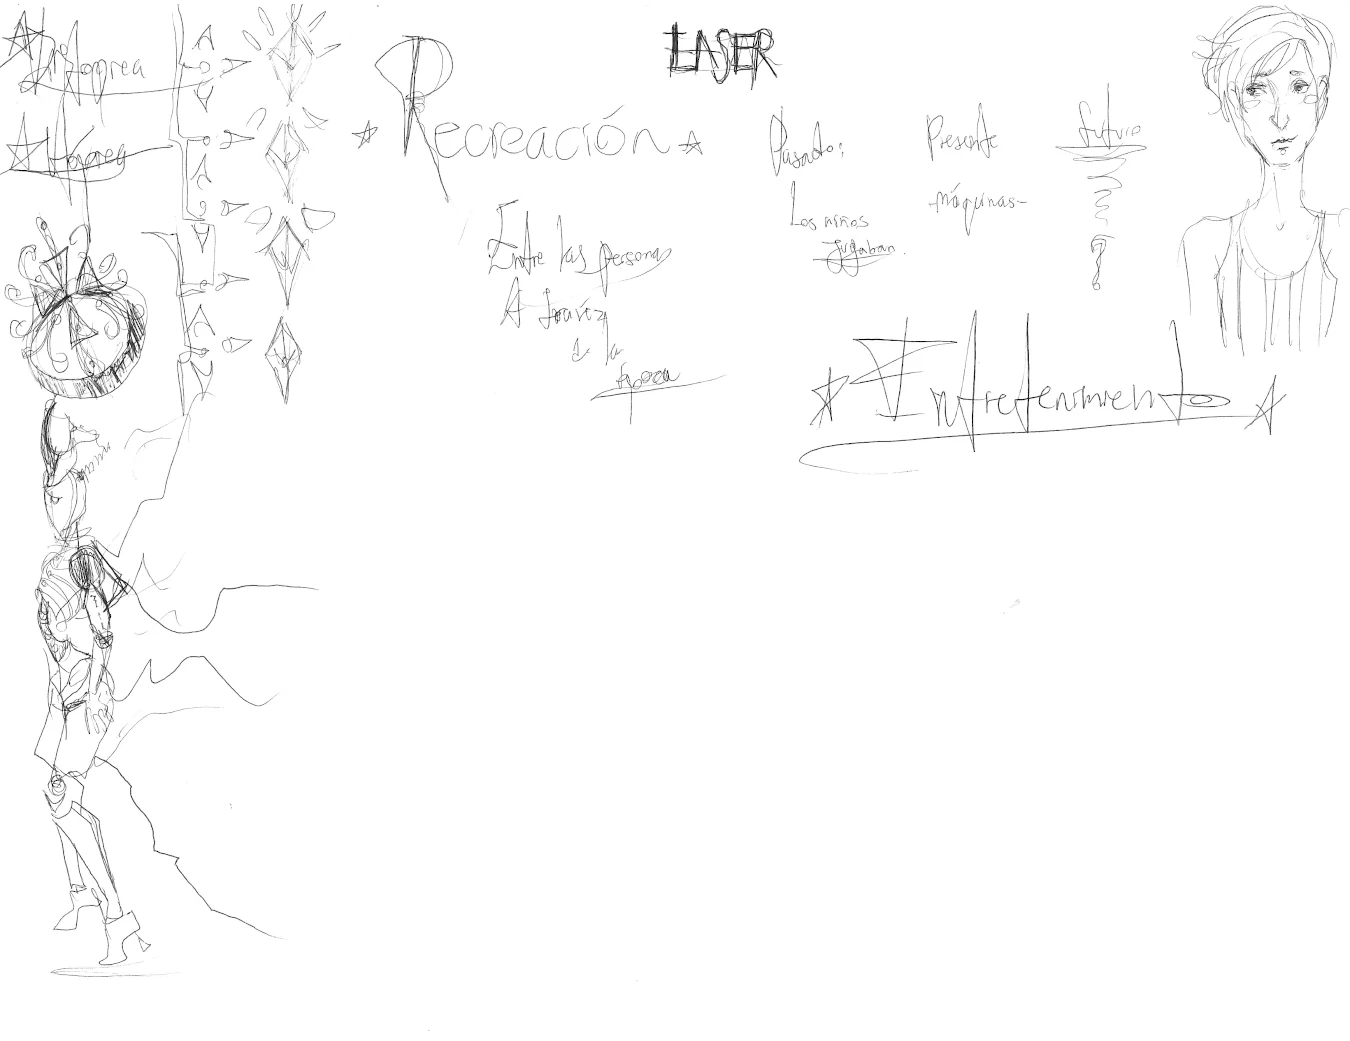 LASER
Recreación
Entre las personas
A través
de la
época
Pasado:
Los niños
jugaban.
Presente
-máquinas-
futuro
?
Entretenimiento